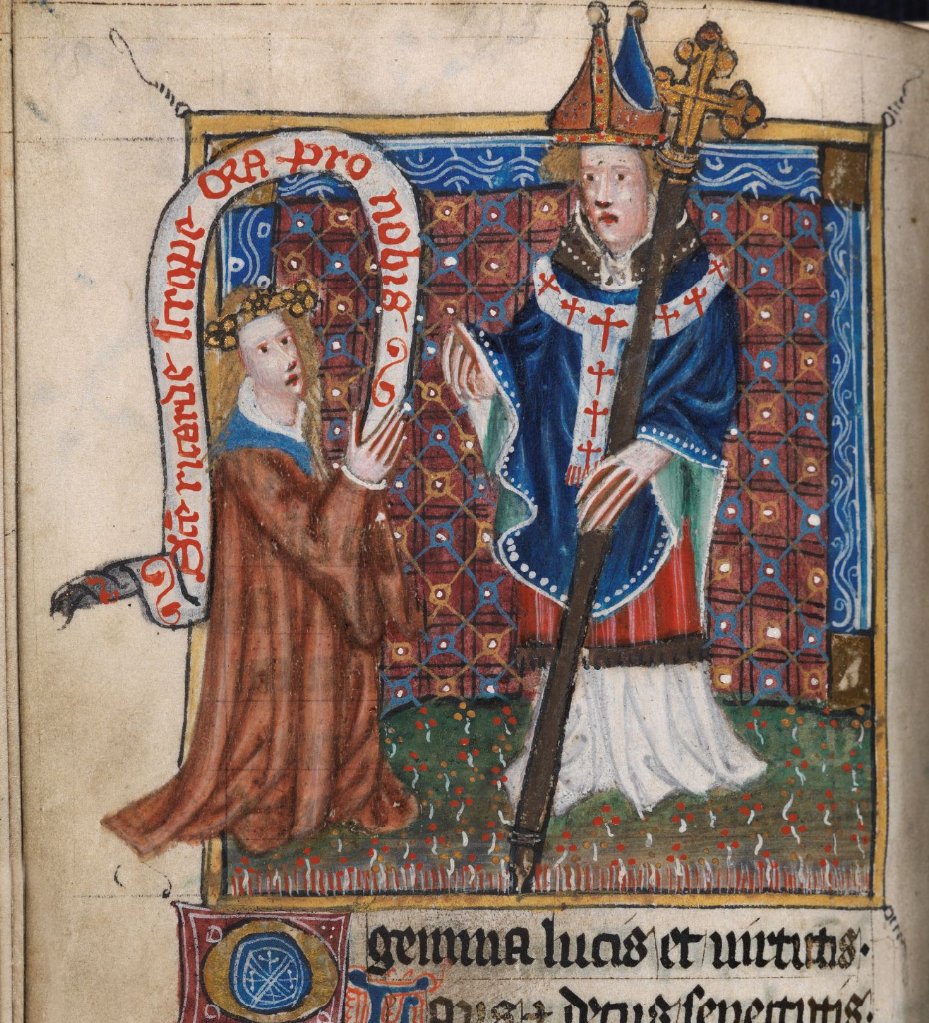 Sce ricarde scrope ORA pro nobis
O gemma lucis et uirtutis.
decus senectutis.